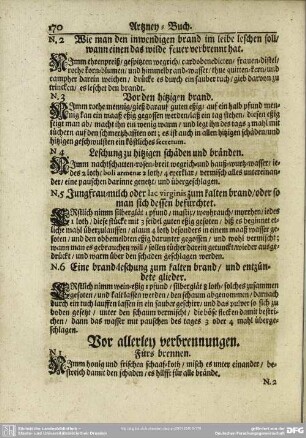 170 Artzney- Buch.
N. 2 Wie man den inwendigen brand im leibe leschen soll/
wann einen das wilde feuer verbrennt hat.
Nimm ehrenpreiß/ gespitzten wegerich/ cardobenedicten/ frauen-distel/
rothe kornblumen/ und himmelbrand-wasser/ thue quitten-kern/ und
campher darein weichen/ drucke es durch ein sauber tuch/ gieb darvon zu
trincken/ es leschet den brandt.
N. 3 Vor den hitzigen brand.
Nimm rothe mennig/ gieß darauf guten eßig/ auf ein halb pfund men-
nig kan ein maaß eßig gegossen werden/ laß ein tag stehen/
man ab/ macht ihn ein wenig warm/ und legt ihn des tags 3 mahl mit
tüchern auf den schmertzhafften ort; es ist auch in allen hitzigen schäden und
hitzigen geschwulsten ein köstliches
N. 4 Leschung zu hitzigen schäden und bränden.
Nimm nachtschatten-wasser/ breit wegerich- und hauß-wurtz-wasser/ je-
des 2 loth/ boli armenæ 2 loth/ 4 eyerklar/ vermisch alles untereinan-
der/ eine pauschen darinne genetzt/ und übergeschlagen.
N. 5 Jungfraumilch oder lac virginis zum kalten brand/ oder so
man sich dessen befürchtet.
Erstlich nimm silberglät 1 pfund/ mastix/ weyhrauch/ myrrhen/ jedes
1 loth/ diese stücke mit 3 seidel guten eßig gesotten/ biß es beginnet die
liche mahl überzulauffen/ alaun 4 loth besonders in einem maaß wasser ge-
sotten/ und den obbemeldten eßig darunter gegossen/ und wohl vermischt;
wann man es gebrauchen will/ sollen tücher darein getunckt/ wieder ausge-
druckt/ und warm über den schaden geschlagen werden.
N. 6 Eine brandleschung zum kalten brand/ und entzün-
dete glieder.
Erstlich nimm wein-eßig 1 pfund/ silberglät 8 loth/ solches zusammen
gesotten/ und kalt lassen werden/ den schaum abgenommen/ darnach
durch ein tuch lauffen lassen in ein sauber geschirr/ und das pulver so sich zu
boden gesetzt/ unter den schaum vermischt/ die böse flecken damit bestri-
chen/ dann das wasser mit pauschen des tages 3 oder 4 mahl überge-
schlagen.
Vor allerley verbrennungen.
N. 1 Fürs brennen.
Nimm honig und frischen schaaf-koth/ misch es unter einander/ be-
streich damit den schaden/ es hilfft für alle brände.
N. 2